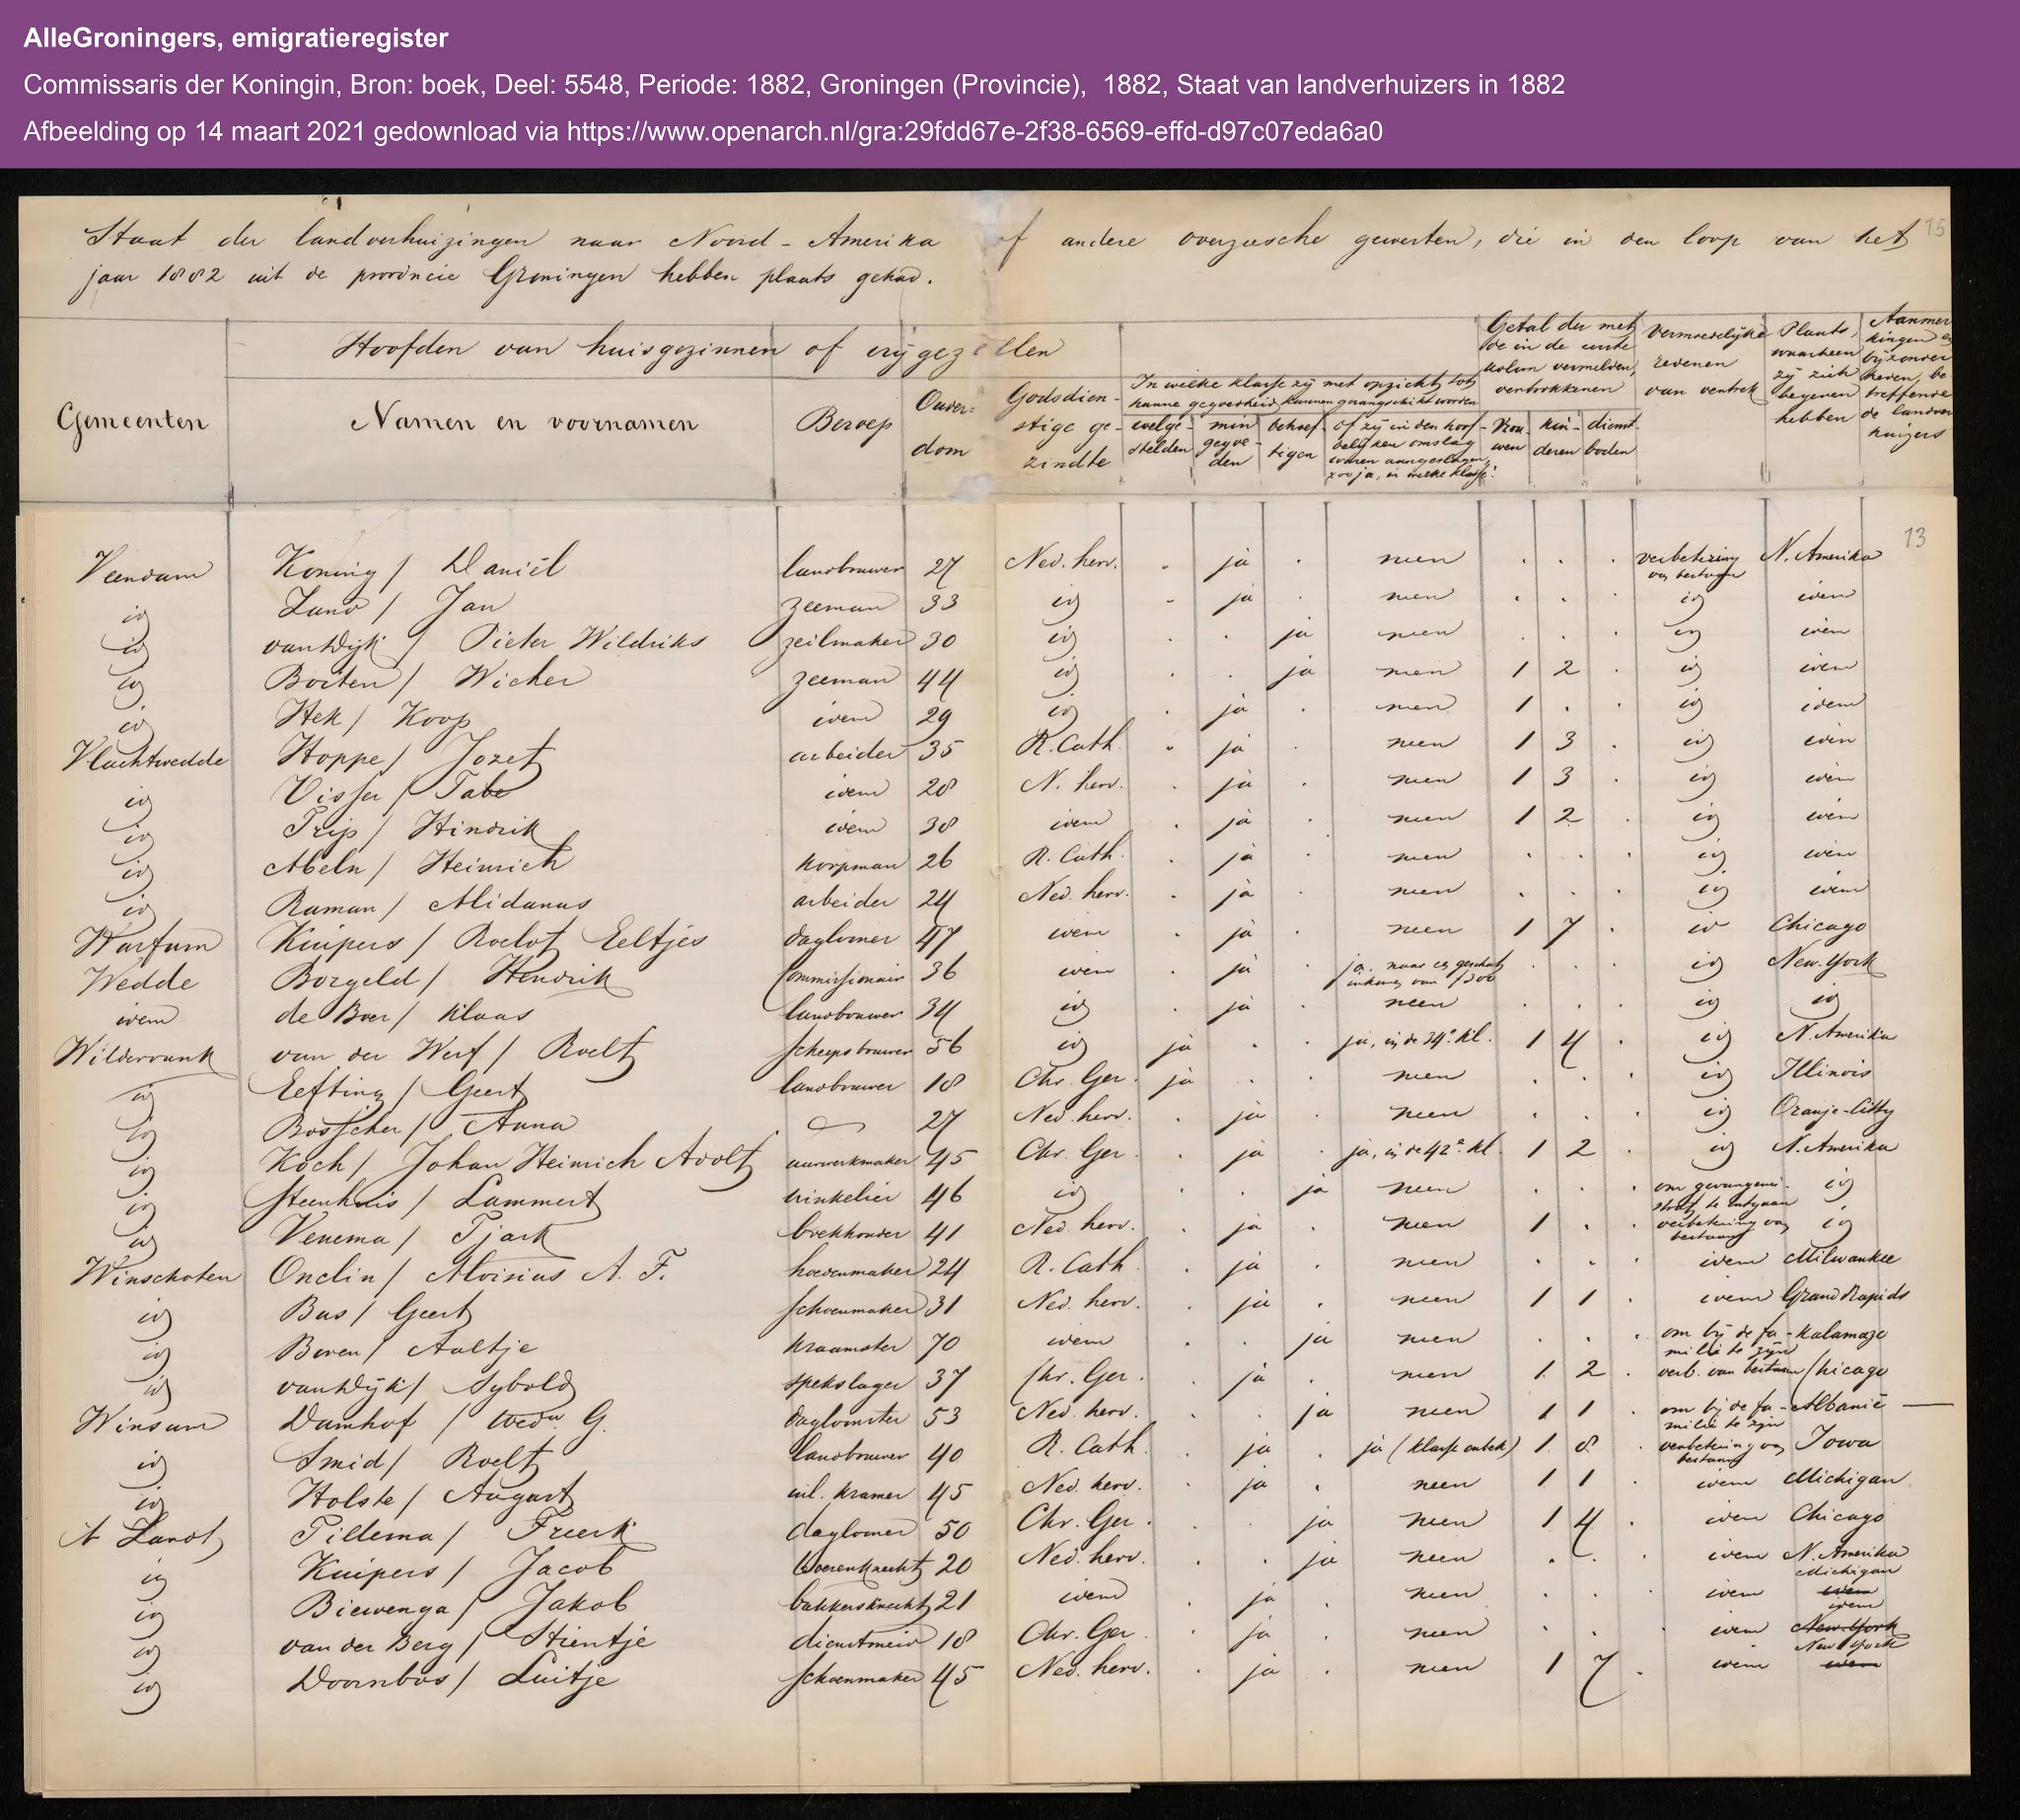 AlleGroningers, emigratieregister
Commissaris der Koningin, Bron: boek, Deel: 5548, Periode: 1882, Groningen (Provincie), 1882, Staat van landverhuizers in 1882
Afbeelding op 14 maart 2021 gedownload via https://www.openarch.nl/gra:29fdd67e-2f38-6569-effd-d97c07eda6a0
15
Staat der landverhuizingen naar Noord-Amerika of andere overzeesche gewesten, die in den loop van het
jaar 1882 uit de provincie Groningen hebben plaats gehad.
Gemeenten
Hoofden van huisgezinnen of vrijgezellen
Namen en voornamen
Beroep
Ouder=
dom
Godsdien-
stige ge-
zindte
In welke klasse zij met opzicht tot
hunne gegoedheid kunnen gerangschikt worden
welge-
stelden
min
gegoe-
den
behoef-
tigen
of zij in den hoof-
delijken omslag
waren aangeslagen,
zoo ja, in welke klasse?
Getal der met
de in de eerste
kolom vermelden,
vertrokkenen
Vrou-
wen
kin-
deren
dienst-
boden
Vermoedelijke
redenen
van vertrek
Plaats,
waarheen
zij zich
begeven
hebben
Aanmer
kingen en
bijzonder
heden, be
treffende
de landver
huizers
13
Veendam Koning / Daniël landbouwer 27 Ned. herv. ja neen verbetering van bestaan N. Amerika
id Land / Jan zeeman 33 id ja neen id idem
id van Dijk / Pieter Wildriks zeilmaker 30 id ja neen id idem
id Boiten / Wicher zeeman 44 id ja neen 1 2 id idem
id Hek / Koop idem 29 id ja neen 1 id idem
Vlachtwedde Hoppe / Jozef arbeider 35 R. Cath. ja neen 1 3 id idem
id Visser / Tabe idem 28 N. herv. ja neen 1 3 id idem
id Trip / Hindrik idem 38 idem ja neen 1 2 id idem
id Abeln / Heinrich koopman 26 R. Cath. ja neen id idem
id Raman / Alidanus arbeider 24 Ned. herv. ja neen id idem
Warfum Kuipers / Roelof Eeltjes daglooner 47 idem ja neen 1 7 id Chicago
Wedde Borgeld / Hendrik Commissionair 36 idem ja ja. naar een geschat inkomen van f300 id New-York
idem de Boer / Klaas landbouwer 34 id ja neen id id
Wildervank van der Werf / Roelf scheepsbouwer 56 id ja ja, in de 34e. kl. 1 4 id N. Amerika
id Eefting / Geert landbouwer 18 Chr. Ger. ja neen id Illinois
id Bosscher / Anna 27 Ned. herv. ja neen id Oranje-Citty
id Koch / Johan Heinrich Adolf uurwerkmaker 45 Chr. Ger. ja ja, in de 42e. kl. 1 2 id N. Amerika
id Steenhuis / Lammert winkelier 46 id ja neen om gevangenis straf te ontgaan id
id Venema / Tjark boekhouder 41 Ned. herv. ja neen 1 verbetering van bestaan id
Winschoten Onclin / Aloisius A. F. hoedenmaker 24 R. Cath. ja neen idem Milwaukee
id Bus / Geert schoenmaker 31 Ned. herv. ja neen 1 1 idem Grand Rapids
id Boven / Aaltje kraamster 70 idem ja neen om bij de fa- milie te zijn Kalamazo
id van Dijk / Sybold spekslager 37 Chr. Ger. ja neen 1 2 verb. van bestaan Chicago
Winsum Damhof / wedw G. dagloonster 53 Ned. herv. ja neen 1 1 om bij de fa- milie te zijn Albanië
id Smid / Roelf landbouwer 40 R. Cath. ja ja (klasse onbek) 1 8 verbetering van bestaan Iowa
id Holste / August kramer 45 Ned. herv. ja neen 1 1 idem Michigan
't Zandt Tillema / Freerk daglooner 50 Chr. Ger. ja neen 1 4 idem Chicago
id Kuipers / Jacob boerenknecht 20 Ned. herv. ja neen idem N. Amerika
id Biewenga / Jakob bakkersknecht 21 idem ja neen idem Michigan idem
id van der Berg / Stientje dienstmeid 18 Chr. Ger. ja neen idem idem New-York
id Doornbos / Luitje schoenmaker 45 Ned. herv. ja neen 1 7 idem New York idem